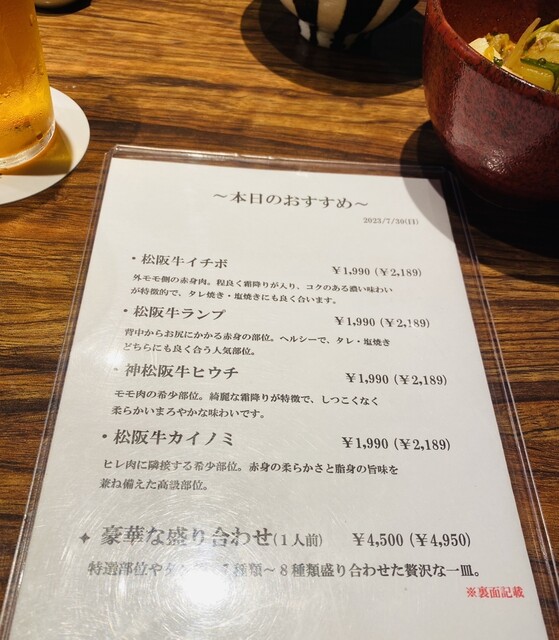 ～本日のおすすめ～
2023/7/30(日)
・松阪牛イチボ ￥1,990 (￥2,189)
外モモ側の赤身肉。程良く霜降りが入り、コクのある濃い味わい
が特徴的で、タレ焼き・塩焼きにも良く合います。
・松阪牛ランプ ￥1,990 (￥2,189)
背中からお尻にかかる赤身の部位。ヘルシーで、タレ・塩焼き
どちらにも良く合う人気部位。
・神松阪牛ヒウチ ￥1,990 (￥2,189)
モモ肉の希少部位。綺麗な霜降りが特徴で、しつこくなく
柔らかいまろやかな味わいです。
・松阪牛カイノミ ￥1,990 (￥2,189)
ヒレ肉に隣接する希少部位。赤身の柔らかさと脂身の旨味を
兼ね備えた高級部位。
✦ 豪華な盛り合わせ(1人前) ￥4,500 (￥4,950)
特選部位や 種類～8種類盛り合わせた贅沢な一皿。
※裏面記載